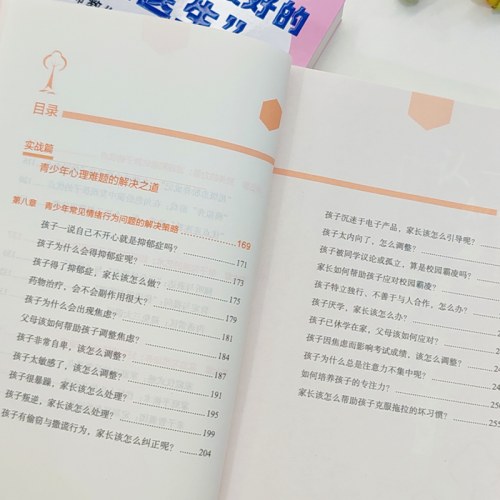 好的
医生”
目录
实战篇
青少年心理难题的解决之道
第八章 青少年常见情绪行为问题的解决策略 169
孩子一说自己不开心就是抑郁症吗？ 171
孩子为什么会得抑郁症呢？ 173
孩子得了抑郁症，家长该怎么做？ 175
药物治疗，会不会副作用很大？ 179
孩子为什么会出现焦虑？ 181
父母该如何帮助孩子调整焦虑？ 184
孩子非常自卑，该怎么调整？ 187
孩子太敏感了，该怎么调整？ 191
孩子很暴躁，家长该怎么处理？ 195
孩子叛逆，家长该怎么处理？ 199
孩子有偷窃与撒谎行为，家长该怎么纠正呢？ 204
孩子沉迷于电子产品，家长该怎么引导呢？
孩子太内向了，怎么调整？
孩子被同学议论或孤立，算是校园霸凌吗？
家长如何帮助孩子应对校园霸凌？
孩子特立独行，不善于与人合作，怎么办？
孩子厌学，家长该怎么办？
孩子已休学在家，父母该如何应对？
孩子因焦虑而影响考试成绩，该怎么调整？
孩子为什么总是注意力不集中呢？
如何培养孩子的专注力？
家长该怎么帮助孩子克服拖拉的坏习惯？